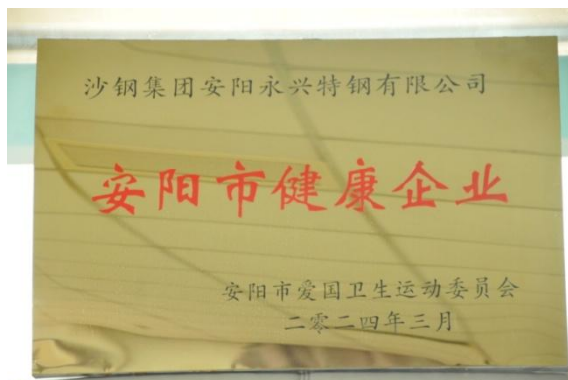 沙钢集团安阳永兴特钢有限公司
安阳市健康企业
安阳市爱国卫生运动委员会
二零二四年三月